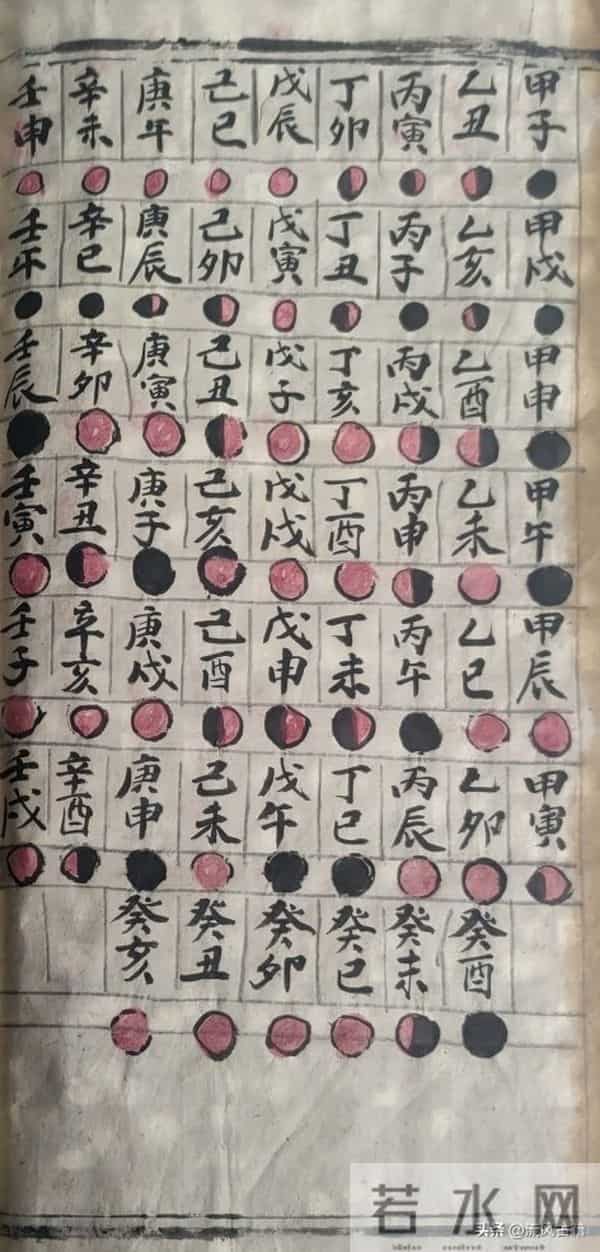 甲子 乙丑 丙寅 丁卯 戊辰 己巳 庚午 辛未 壬申
甲戌 乙亥 丙子 丁丑 戊寅 己卯 庚辰 辛巳 壬午
甲申 乙酉 丙戌 丁亥 戊子 己丑 庚寅 辛卯 壬辰
甲午 乙未 丙申 丁酉 戊戌 己亥 庚子 辛丑 壬寅
甲辰 乙巳 丙午 丁未 戊申 己酉 庚戌 辛亥 壬子
甲寅 乙卯 丙辰 丁巳 戊午 己未 庚申 辛酉 壬戌
癸酉 癸未 癸巳 癸卯 癸丑 癸亥
若水网
头条